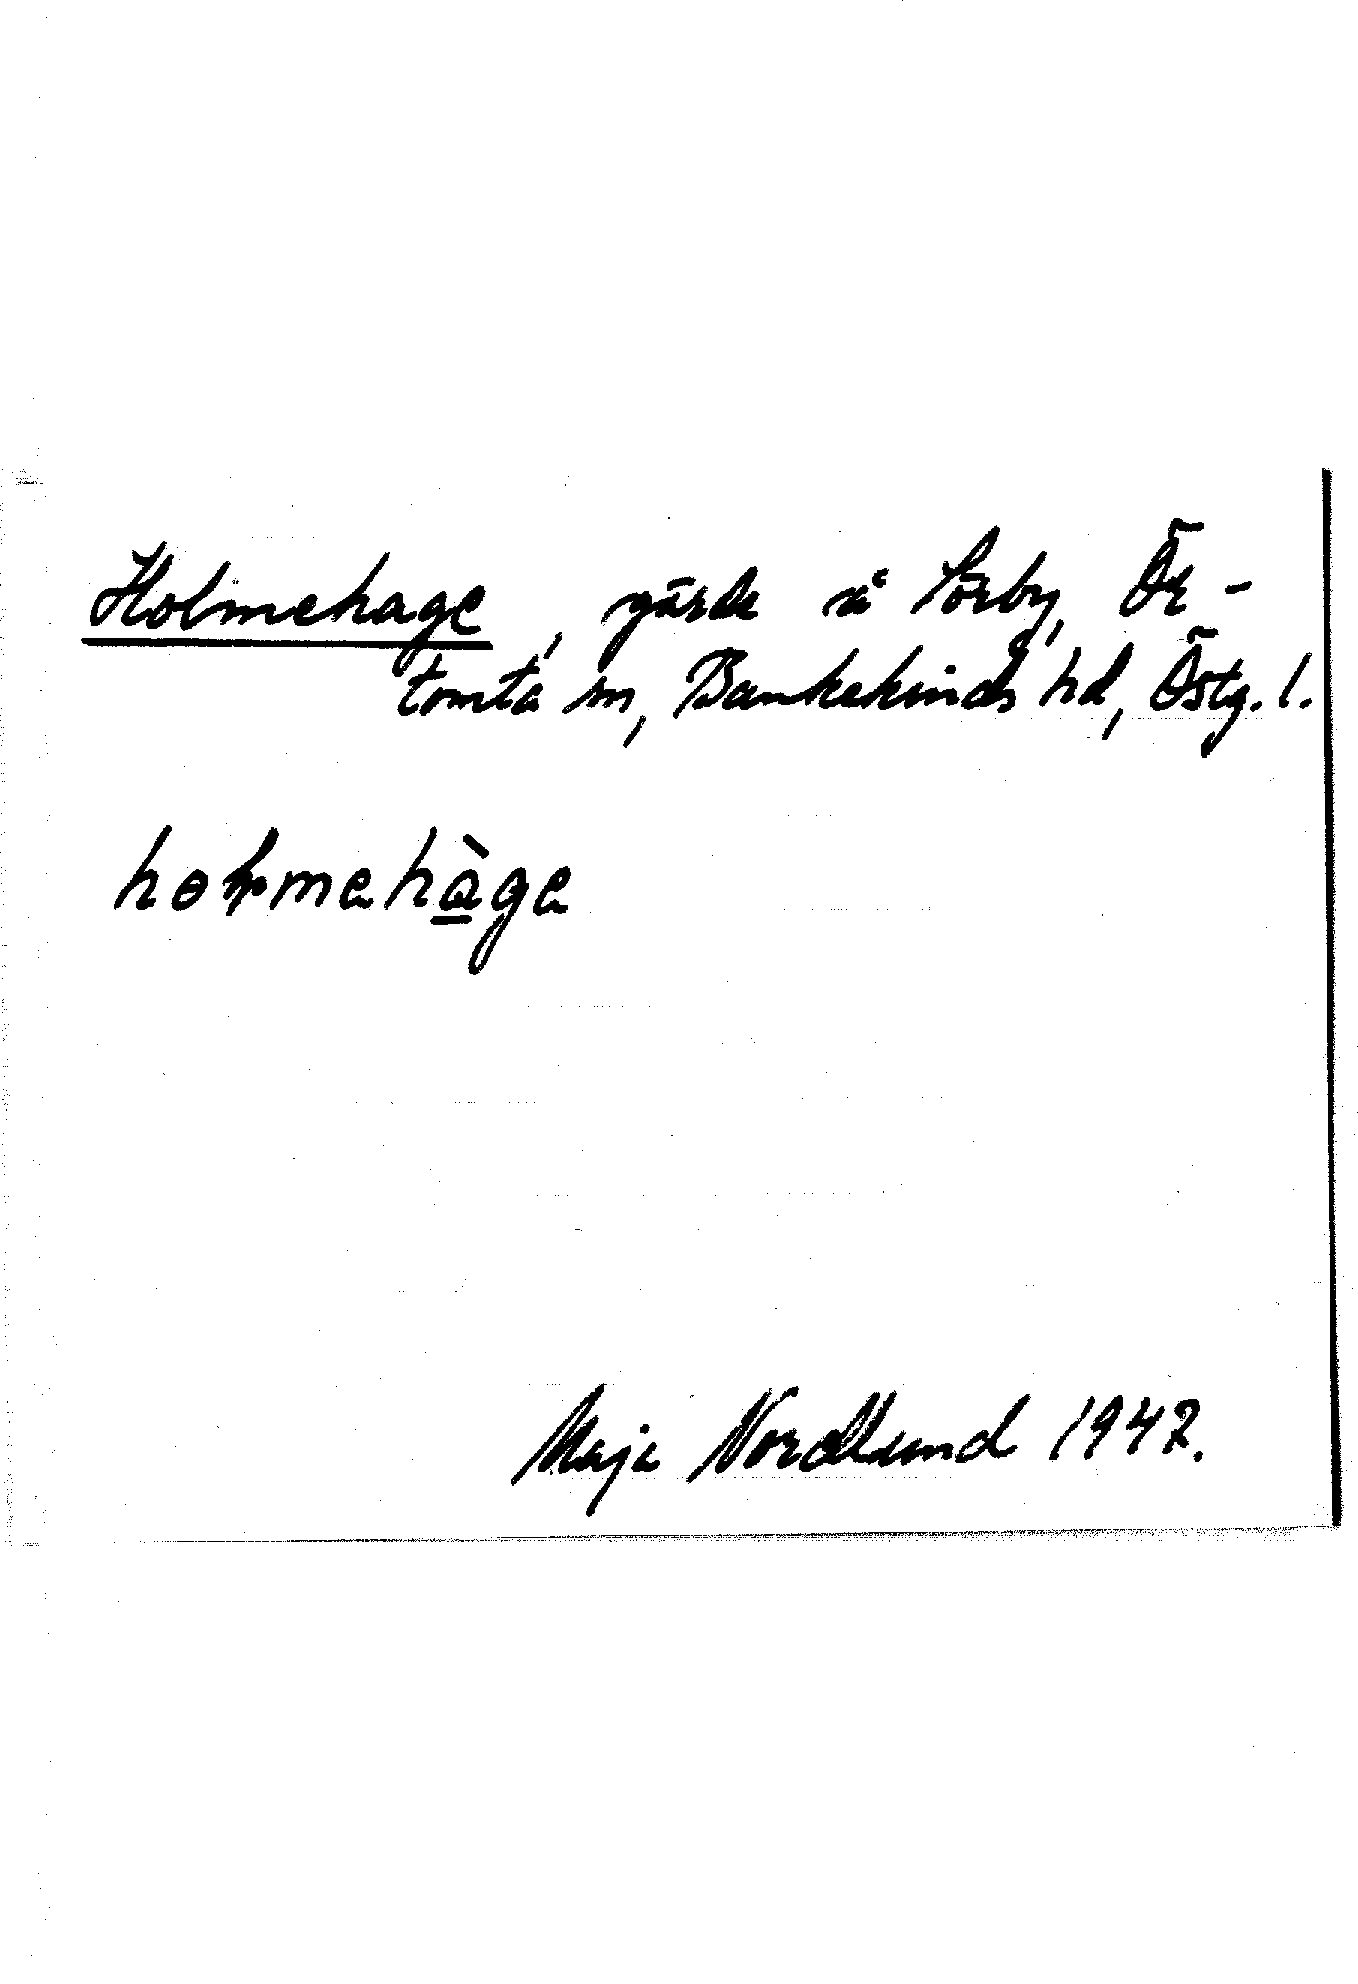 Holmehage, gärde å Sörby, Ör-
tomta sn, Bankekinds hd, Östg. l.
hołmehàge
Maja Nordlund 1942.